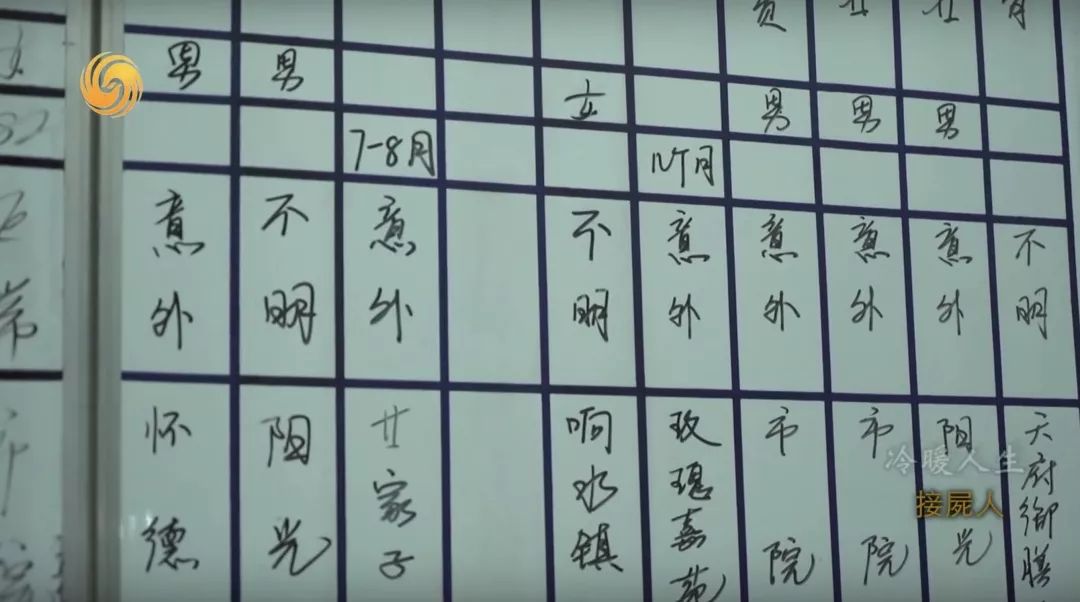 男 男 女 男 男 男
7-8月 10个月
意外 不明 意外 不明 意外 意外 意外 意外 不明
怀德 阳光 廿家子 响水镇 玫瑰嘉 市院 市院 阳光 天府御膳
冷暖人生
接屍人